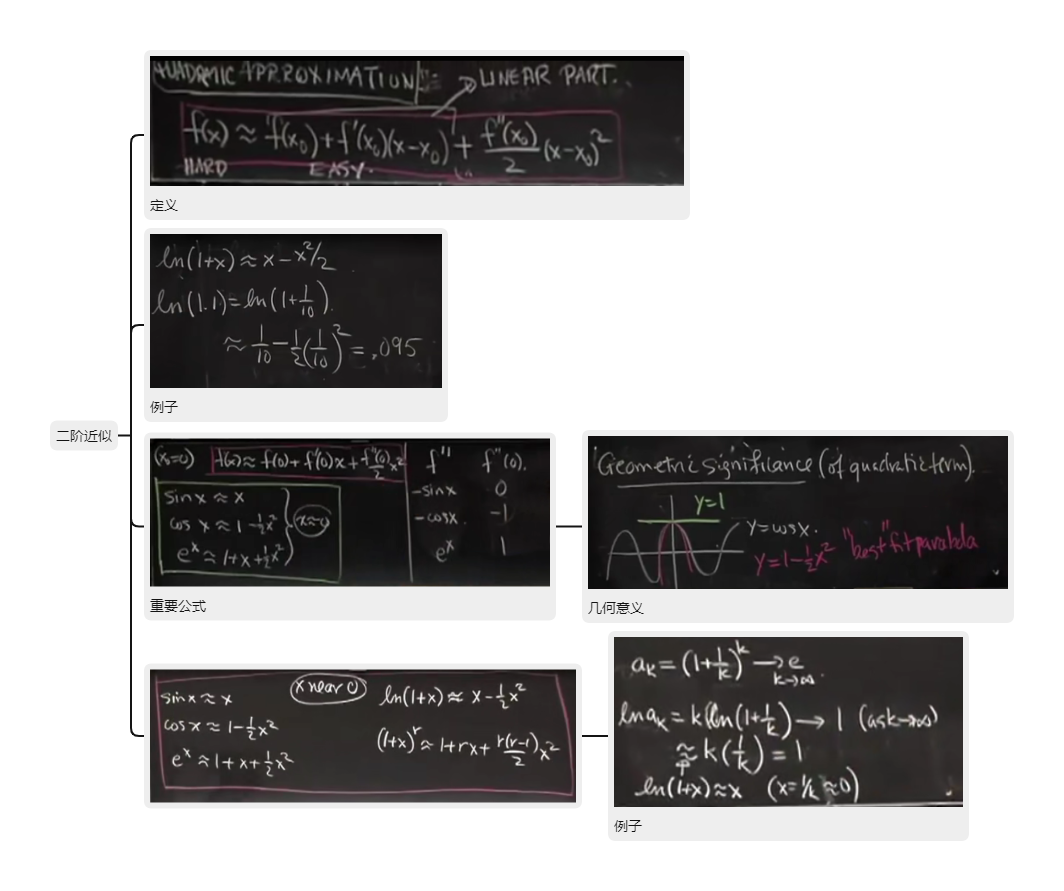 二阶近似
QUADRATIC APPROXIMATION → LINEAR PART.
f(x) ≈ f(x₀)+f'(x₀)(x-x₀) + f''(x₀)/2 (x-x₀)²
HARD EASY.
定义
ln(1+x) ≈ x - x²/2
ln(1.1) = ln(1+1/10).
≈ 1/10 - 1/2(1/10)² = .095
例子
(x₀=0) f(x) ≈ f(0)+f'(0)x + f''(0)/2 x² f'' f''(0).
sin x ≈ x -sin x 0
cos x ≈ 1 - 1/2x² (x≈0) -cos x. -1
eˣ ≈ 1+x+1/2x² eˣ 1
重要公式
Geometric Significance (of quadratic term).
y=1
y=cos x.
y=1-1/2x² "best" fit parabola
几何意义
sin x ≈ x x near 0 ln(1+x) ≈ x - 1/2x²
cos x ≈ 1 - 1/2x²
eˣ ≈ 1+x+1/2x² (1+x)ʳ ≈ 1+rx + r(r-1)/2 x²
aₖ = (1+1/k)ᵏ → e
k→∞.
ln aₖ = k ln(1+1/k) → 1 (as k→∞)
≈ k(1/k) = 1
↑
ln(1+x) ≈ x (x=1/k ≈ 0)
例子